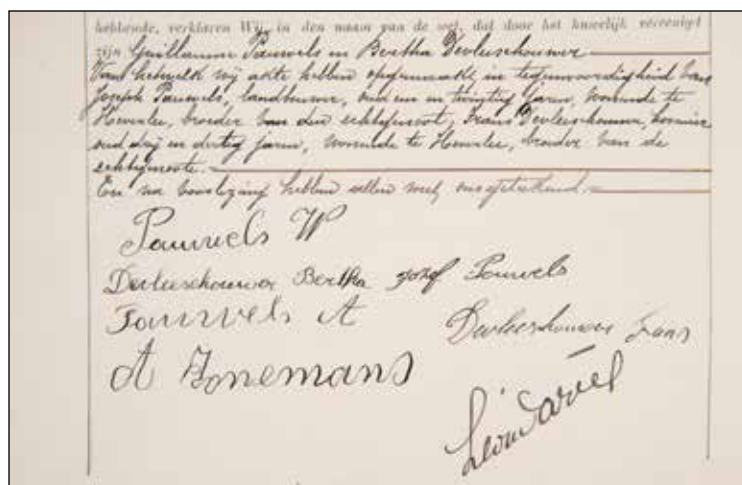 hebbende, verklaren Wij, in den naam van de wet, dat door het huwelijk vereenigd
zijn Guillaume Pauwels en Bertha Devleeschouwer
Van hetwelk wij akte hebben opgemaakt in tegenwoordigheid van
Joseph Pauwels, landbouwer, oud een en twintig jaren, wonende te
Heverlee, broeder van den echtgenoot, Frans Devleeschouwer, kommies
oud drij en dertig jaren, wonende te Heverlee, broeder van de
echtgenoote.
En na voorlezing hebben allen met ons geteekend.
Pauwels W
Devleeschouwer Bertha Jozef Pauwels
Pauwels A Devleeschouwer Frans
A Zonemans